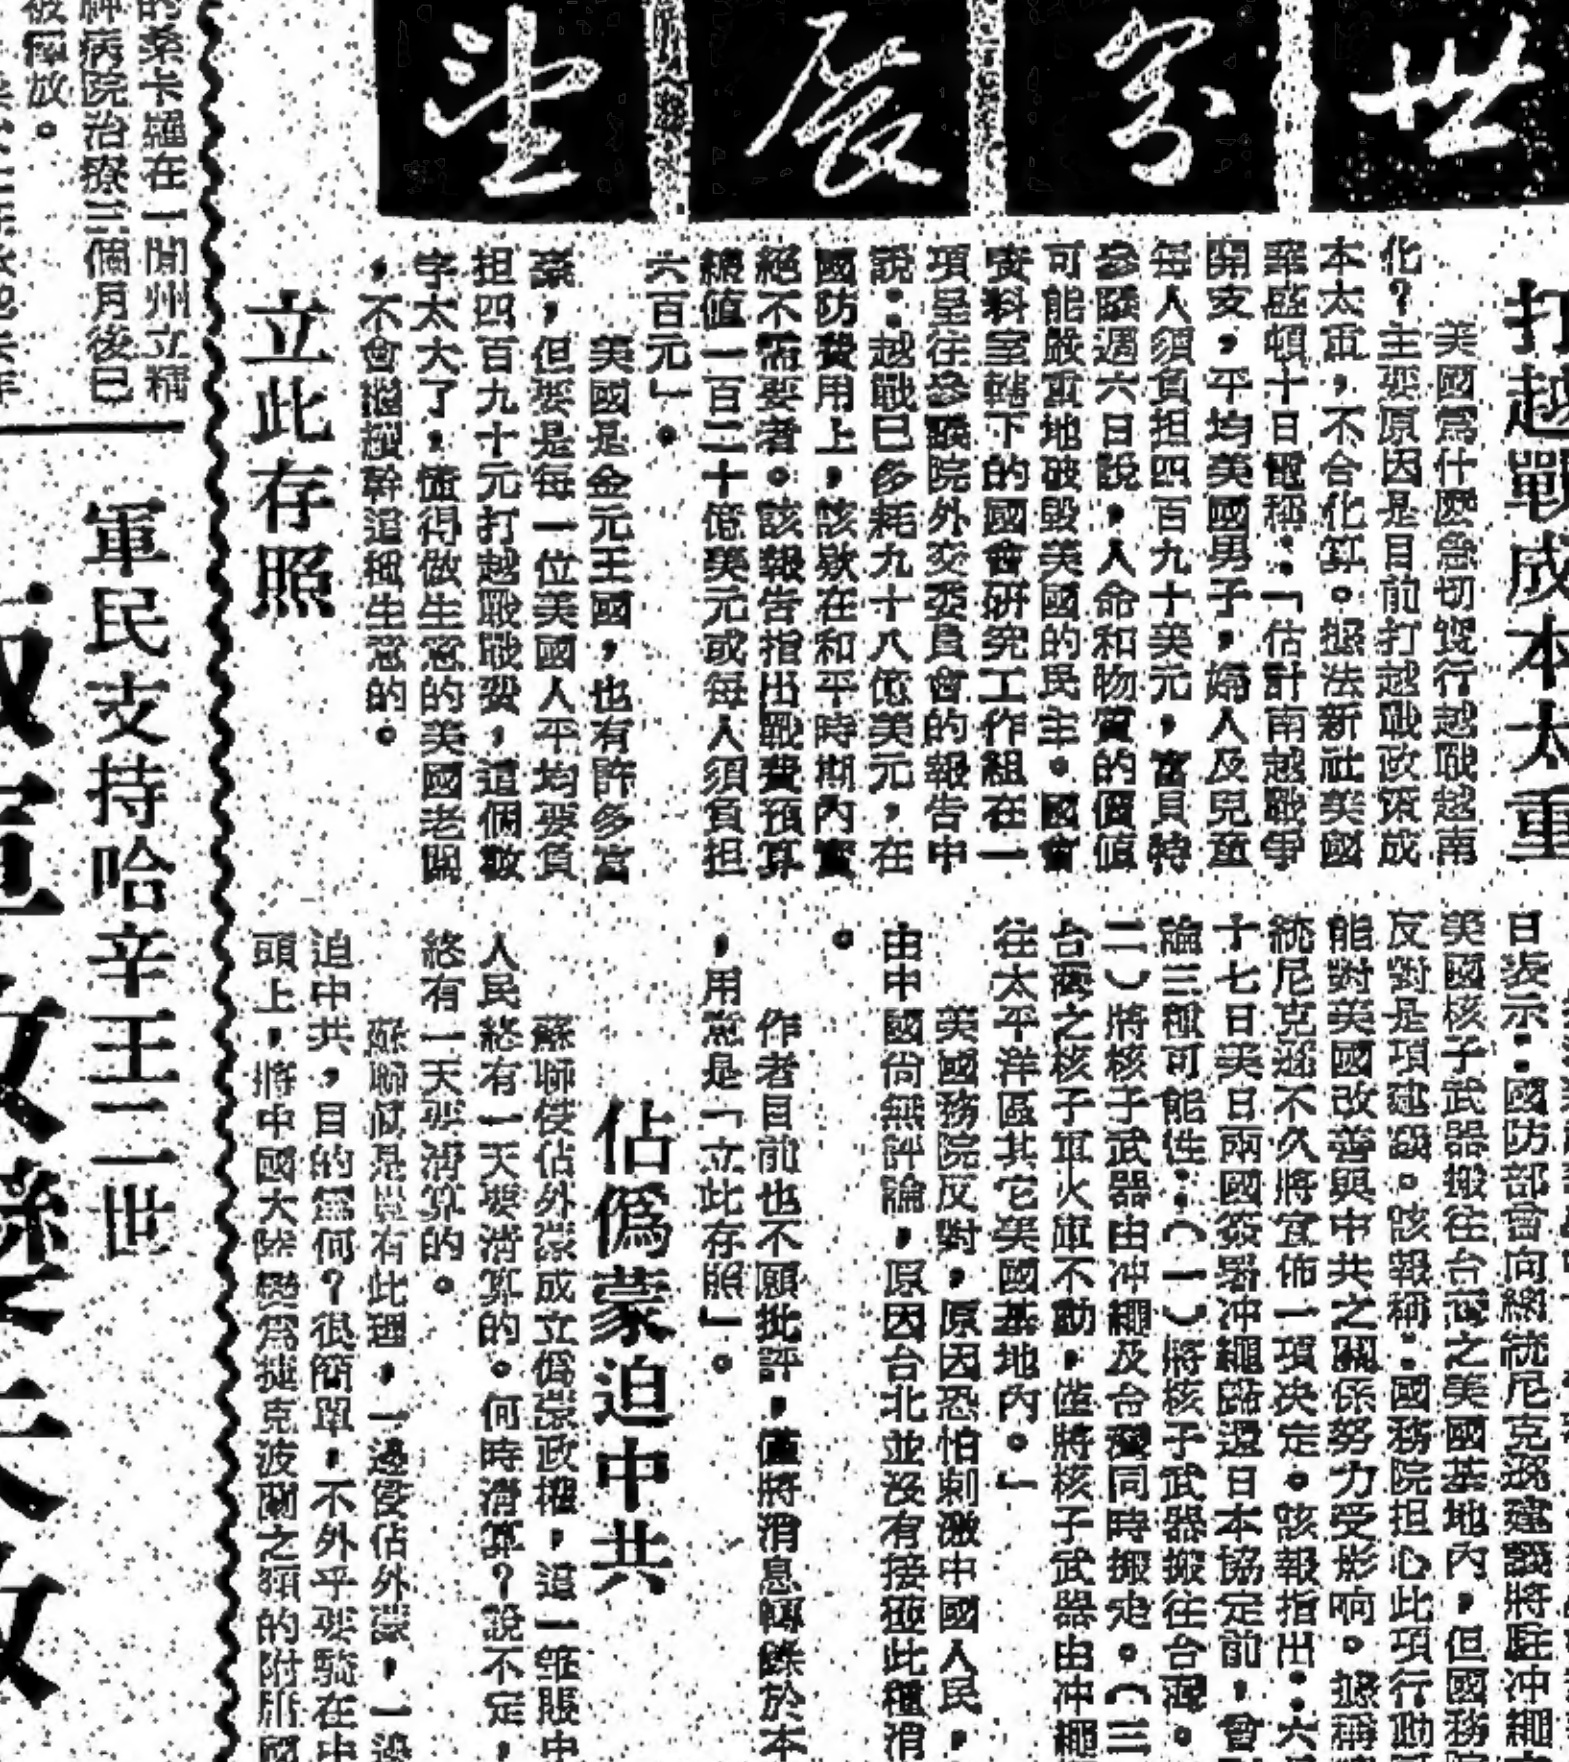 世界展望
打越戰成本太重
美國爲什麽急切實行越戰越南
化？主要原因是目前打越戰政策成
本太重，不合化算。據法新社美國
華盛頓十日電稱：「估計南越戰爭
開支，平均美國男子，婦人及兒童
每人須負担四百九十美元，富貝特
參議週六日說，人命和物質的價值
可能嚴重地破毀美國的民主。國會
資料室轄下的國會研究工作組在一
項呈往參議院外交委員會的報告中
說：越戰已多耗九十八億美元，在
國防費用上，該欵在和平時期內實
絕不需要者。該報告指出戰費預算
總值一百二十億美元或每人須負担
六百元」。
美國是金元王國，也有許多富
豪，但要是每一位美國人平均要負
担四百九十元打越戰戰費，這個數
字太大了，懂得做生意的美國老闆
，不會繼續幹這種生意的。
立此存照
日表示：國防部會向總統尼克遜建議將駐冲繩
美國核子武器搬往台灣之美國基地內，但國務
反對是項建議。該報稱：國務院担心此項行動
能對美國改善與中共之關係努力受影响。據稱
統尼克遜不久將宣佈一項決定。該報指出：六
十七日美日兩國簽署冲繩歸還日本協定前，曾
論三種可能性：（一）將核子武器搬往台灣。
二）將核子武器由冲繩及台灣同時搬走。（三
台灣之核子軍火庫不動，僅將核子武器由冲繩
往太平洋區其它美國基地內。」
美國務院反對，原因恐怕刺激中國人民，
由中國尙無評論，原因台北並沒有接獲此種消
。
作者目前也不願批評，僅將消息輯錄於本
，用意是「立此存照」。
佔僞蒙迫中共
蘇聯侵佔外蒙成立僞蒙政權，這一筆賬中
人民終有一天要清算的。何時清算？說不定，
終有一天要清算的。
蘇聯眞是豈有此理，一邊侵佔外蒙，一邊
迫中共，目的爲何？很簡單，不外乎要騎在中
頭上，將中國大陸變爲捷克波蘭之類的附庸國
的桑卡羅在一間州立精
神病院治療三個月後已
被釋放。
軍民支持哈辛王二世